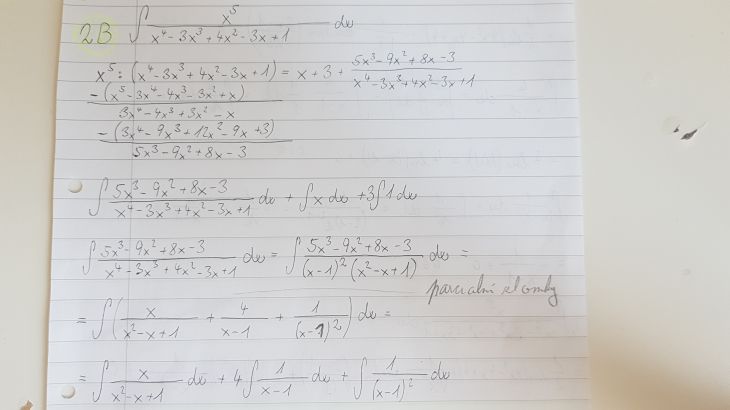 2B ∫ x⁵ / (x⁴ - 3x³ + 4x² - 3x + 1) dx
x⁵ : (x⁴ - 3x³ + 4x² - 3x + 1) = x + 3 + (5x³ - 9x² + 8x - 3) / (x⁴ - 3x³ + 4x² - 3x + 1)
-(x⁵ - 3x⁴ - 4x³ - 3x² + x)
3x⁴ - 4x³ + 3x² - x
-(3x⁴ - 9x³ + 12x² - 9x + 3)
5x³ - 9x² + 8x - 3
∫ (5x³ - 9x² + 8x - 3) / (x⁴ - 3x³ + 4x² - 3x + 1) dx + ∫ x dx + 3∫ 1 dx
∫ (5x³ - 9x² + 8x - 3) / (x⁴ - 3x³ + 4x² - 3x + 1) dx = ∫ (5x³ - 9x² + 8x - 3) / ((x-1)² (x² - x + 1)) dx =
parcialní zlomky
= ∫ ( x / (x² - x + 1) + 4 / (x - 1) + 1 / (x-1)² ) dx =
= ∫ x / (x² - x + 1) dx + 4 ∫ 1 / (x - 1) dx + ∫ 1 / (x-1)² dx